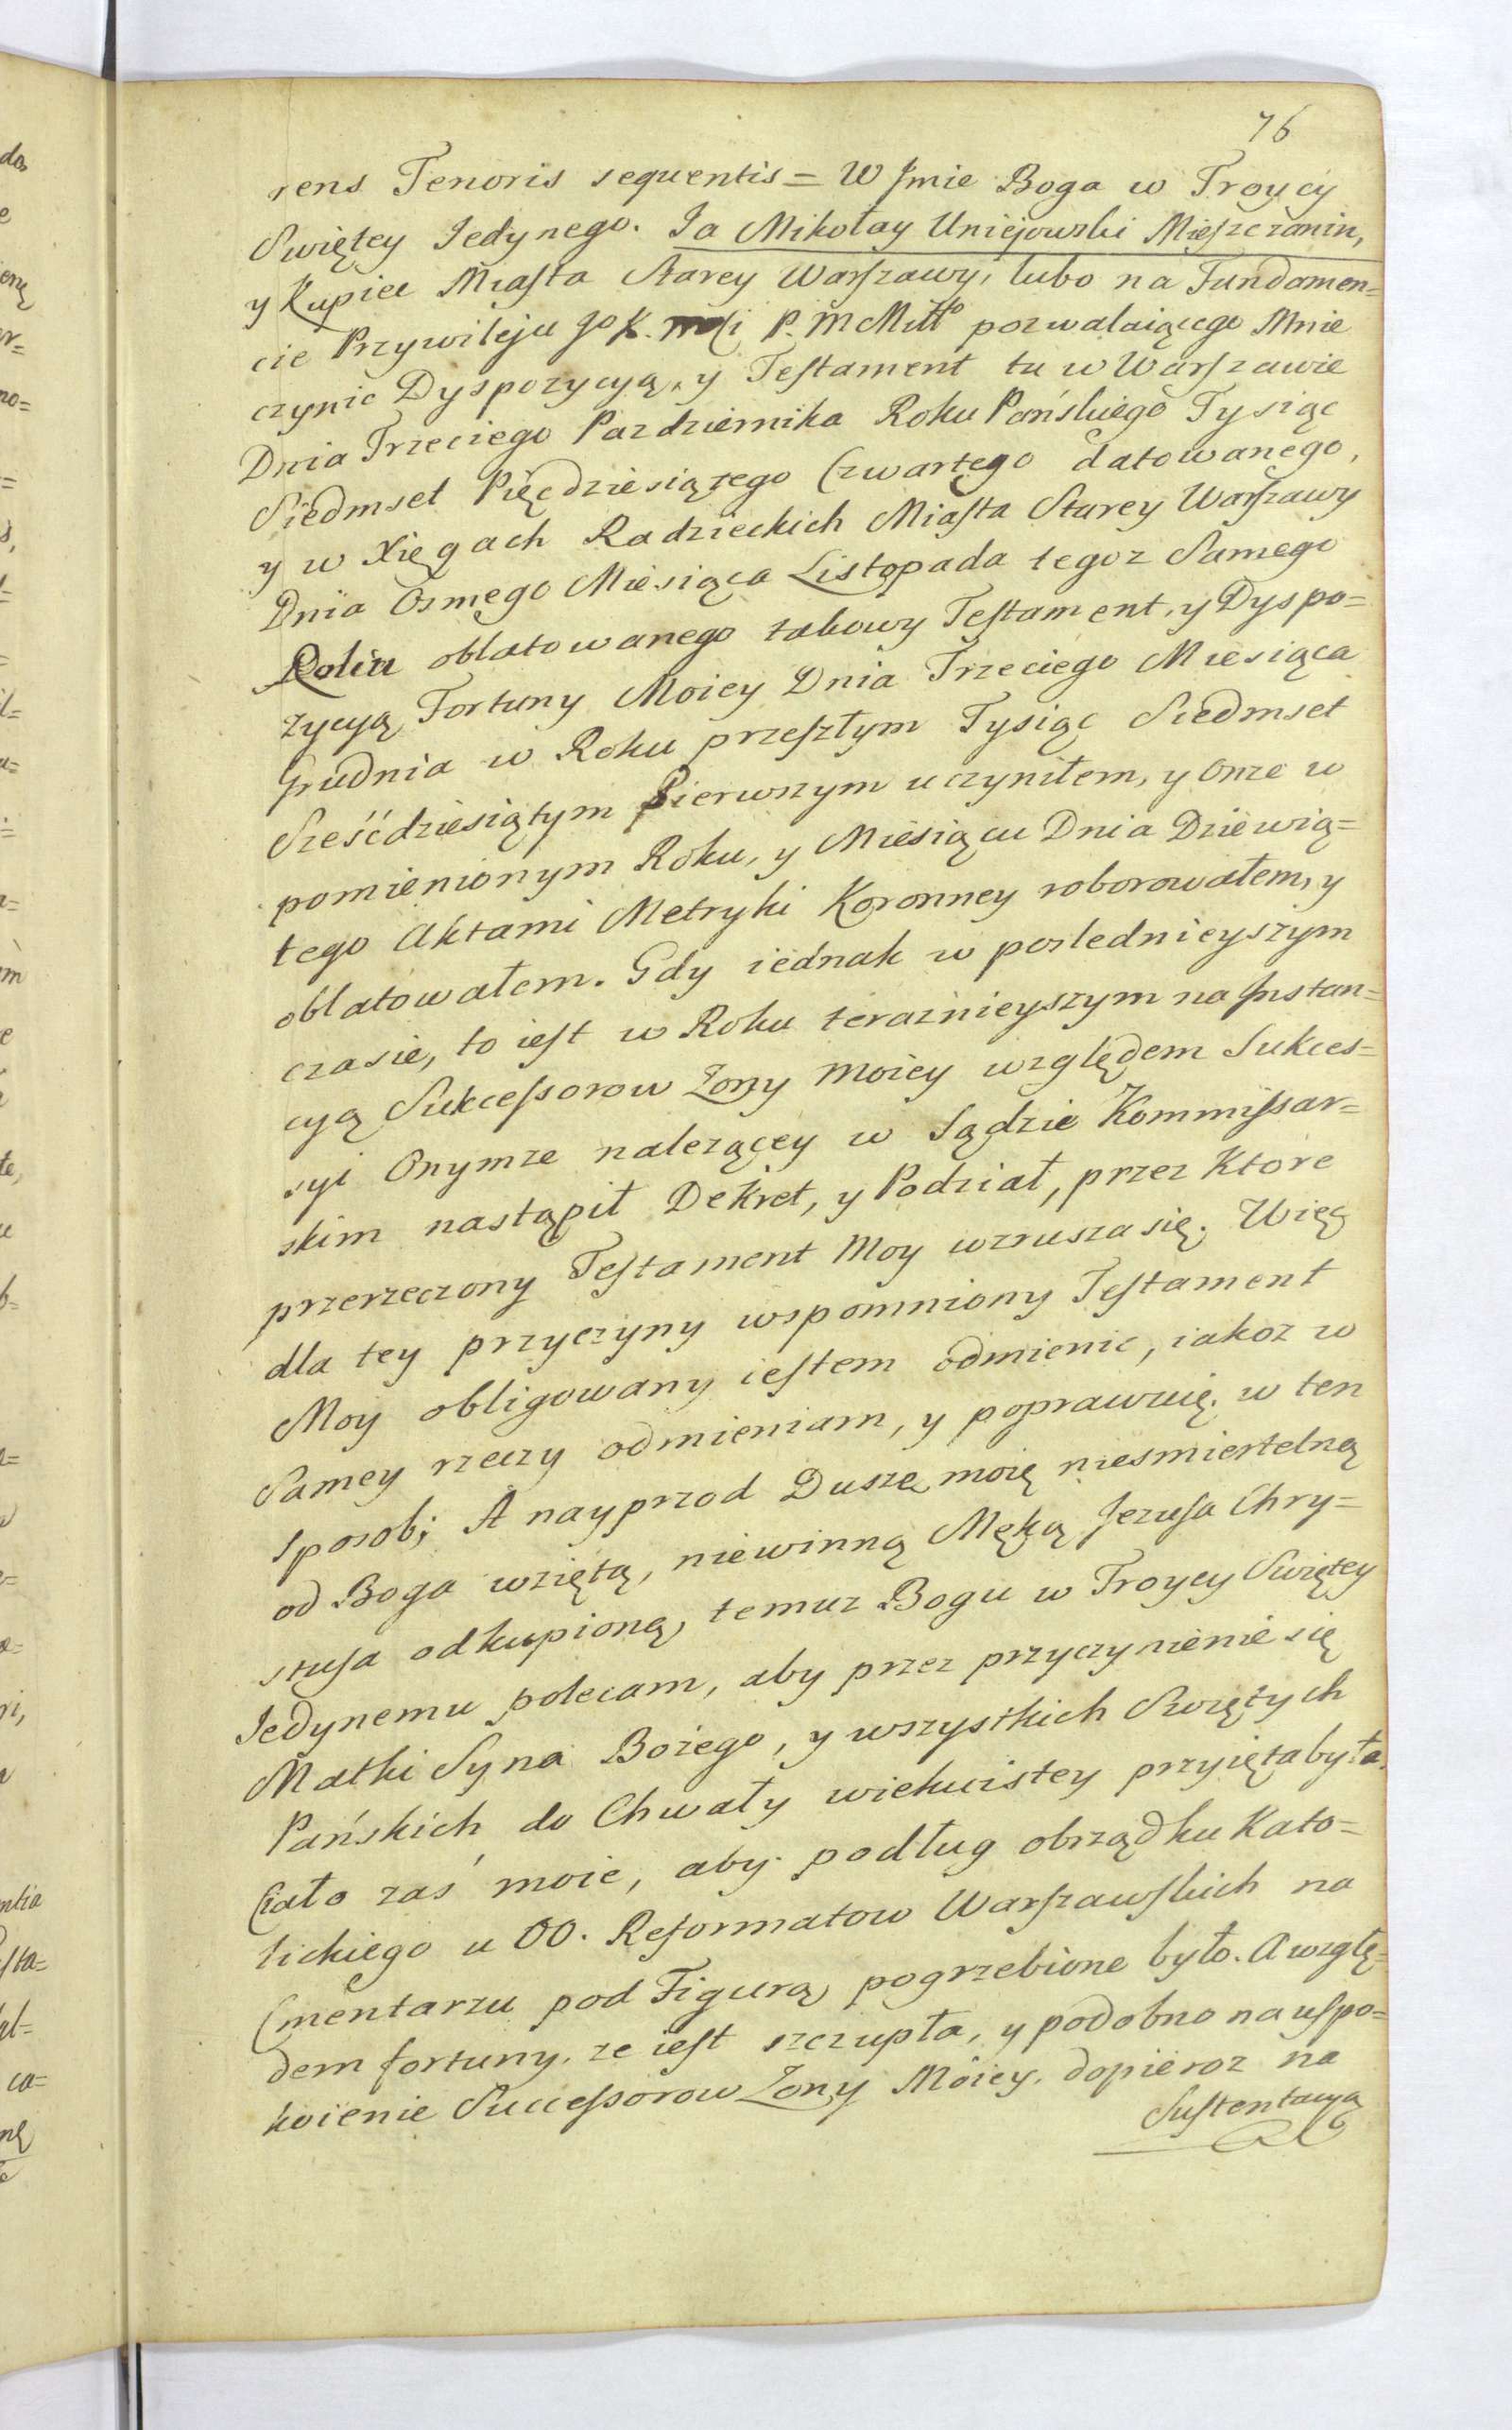 76
rens Tenoris sequentis = W Jmie Boga w Troycy
Swiętey Jedynego. Ja Mikołay Uniejowski Mieszczanin,
y Kupiec Miasta Starey Warszawy, lubo na Fundamen=
cie Przywileju JoK. mći P. M Mttto pozwalaiącego Mnie
czynic Dyspozycyą, y Testament tu w Warszawie
Dnia Trzeciego Pazdziernika Roku Pańskiego Tysiąc
Siedmset Pięcdziesiątego Czwartego datowanego,
y w Xięgach Radzieckich Miasta Starey Warszawy
Dnia Osmego Miesiąca Listopada tegoz Samego
Roku oblatowanego takowy Testament, y Dyspo=
zycyą Fortuny Moiey Dnia Trzeciego Miesiąca
Grudnia w Roku przeszłym Tysiąc Siedmset
Sześćdziesiątym Pierwszym uczyniłem, y Onze w
pomienionym Roku, y Miesiącu Dnia Dziewią=
tego Aktami Metryki Koronney roborowałem, y
oblatowałem. Gdy iednak w poslednieyszym
czasie, to iest w Roku teraznieyszym na Jnstan=
cyą Sukcessorow Zony moiey względem Sukces=
syi Onymze nalezącey w Sądzie Kommissar=
skim nastąpił Dekret, y Podział, przez Ktore
przerzeczony Testament Moy wzrusza się. Więc
dla tey przyczyny wspomniony Testament
Moy obligowany iestem odmienic, iakoz w
Samey rzeczy odmieniam, y poprawuię. w ten
sposob; A nayprzod Duszę moię niesmiertelną
od Boga wziętą, niewinną Męką Jezusa Chry=
stusa odkupioną, temuz Bogu w Troycy Swiętey
Jedynemu polecam, aby przez przyczynienie się
Matki Syna Bożego, y wszystkich Swiętych
Pańskich do Chwały wiekuistey przyięta była.
Ciało zaś moie, aby podług obrządku Kato=
lickiego u OO. Reformatow Warszawskich na
Cmentarzu pod Figurą pogrzebione było. A wzglę=
dem fortuny, ze iest szczupła, y podobno na uspo=
koienie Successorow Zony Moiey, dopieroz na
Sustentacyą